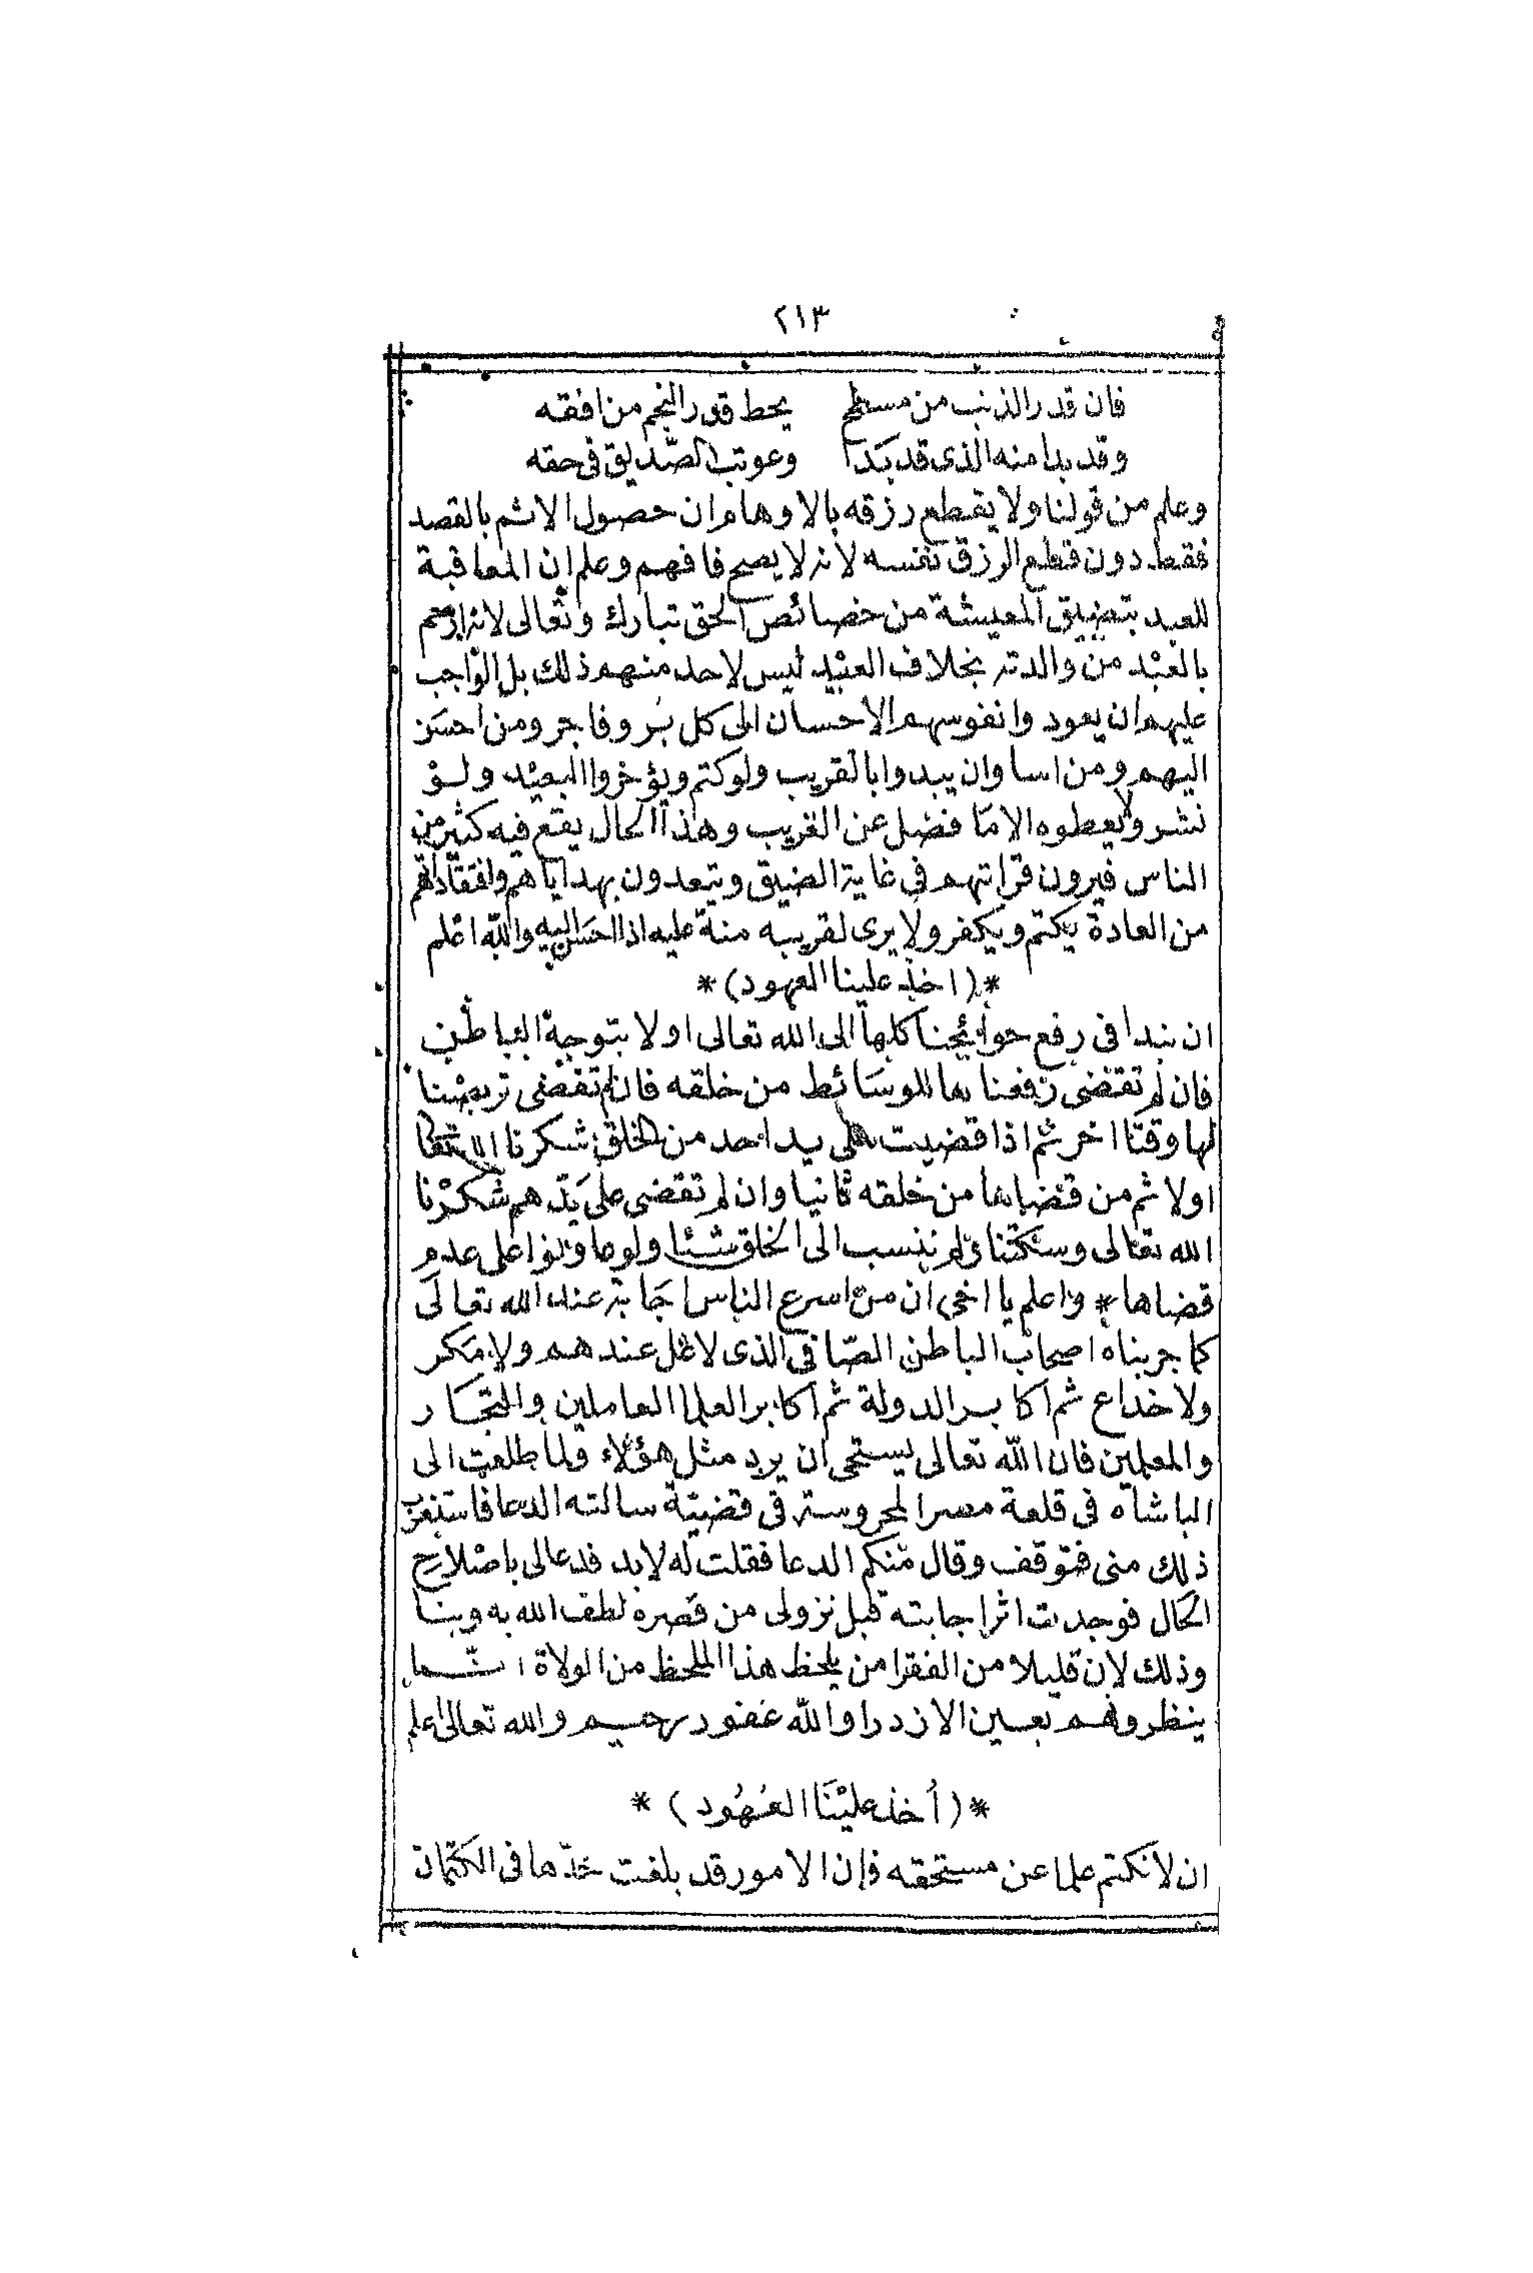 ٢١٣
فان قدر الذنب من مسطح يحط قدر النجم من افقه
وقد بدا منه الذى قد بَدَا وعوتب الصّديق فى حقه
وعلم من قولنا ولا يقطع رزقه بالاوهام ان حصول الاثم بالقصد
فقط دون قطع الرزق نفسه لانه لا يصح فافهم وعلم ان المعاقبة
للعبد بتضييق المعيشة من خصائص الحق تبارك وتعالى لانه ارحم
بالعبْد من والدته بخلاف العبيد ليس لاحد منهم ذلك بل الواجب
عليهم ان يعود وانفوسهم الاحسان الى كل بر وفاجر ومن احسَن
اليهم ومن اسا وان يبدوا بالقريب ولو كتم ويؤخروا البعيْد ولوْ
نشر ولا يعطوه الا مّا فضل عن القريب وهذا الحال يقع فيه كثير من
الناس فيرون قرابتهم فى غاية الضيق ويتبعدون بهداياهم وافتقاداتهم
من العادة يكتم ويكفر ولا يرى لقريبه منة عليه اذا احسَن اليه والله اعْلم
*(اخذ علينا العهود)*
ان نبدا فى رفع حوائجنا كلها الى الله تعالى اولا بتوجهْ الباطن
فان لم تقضى رفعنا ها للوسَائط من خلقه فان لم تقضى تربصْنا
لها وقتا اخر ثم اذا قضيت على يد احد من الخلق شكرنا الله تعالى
اولا ثم من قضاها من خلقه ثانيا وان لم تقضى على يَدّهم شكرْنا
الله تعالى وسكتنا ولم ننسب الى الخلق شئا ولوما ولو اعلى عدم
قضاها* واعلم يا اخى ان من اسرع الناس اجَابة عند الله تعالَى
كما جربناه اصحاب الباطن الصّافى الذى لا غل عندهم ولا مَكر
ولا خداع ثم اكابر الدولة ثم اكابر العلما العاملين والتجَار
والمعلمين فان اللّه تعالى يستحى ان يرد مثل هؤلاء ولما طلعت الى
الباشاه فى قلعة مصر المحروسة فى قضيّة سالته الدعا فاستغرب
ذلك منى فتوقف وقال منكم الدعا فقلت لَه لابد فدعا لى باصْلاح
الحَال فوجدت اثر اجابته قبل نزولى من قصره لطف الله به وبنا
وذلك لان قليلا من الفقرا من يلحظ هذا الملحظ من الولاة انّما
ينظرونهم بعين الازدرا واللّه غفور رحيم والله تعالى اعلم
*(أخذ عليْنَا العُهُود)*
ان لا نكتم علما عن مستحقه فإن الامور قد بلغت حدّها فى الكتمان